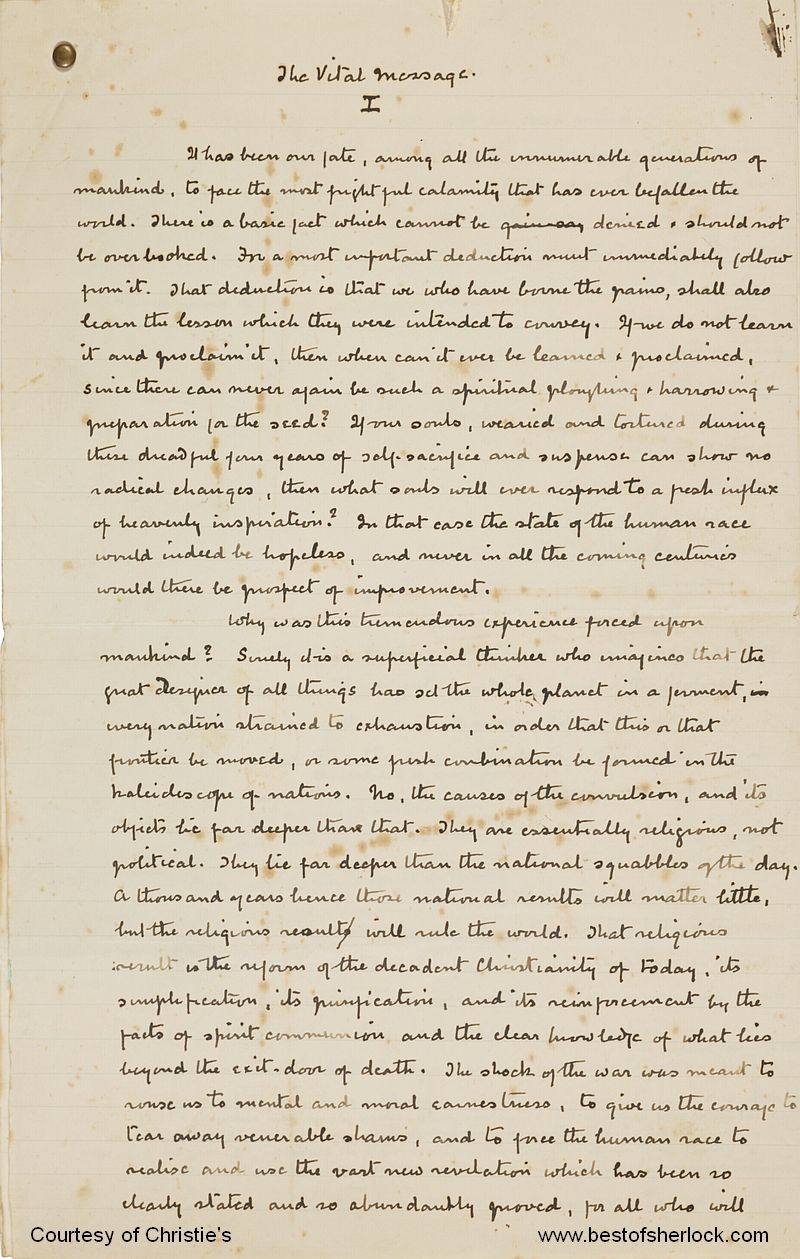 The Vital Message.
I
It has been our fate, among all the innumerable generations of
mankind, to face the most frightful calamity that has ever befallen the
world. There is a basic fact which cannot be gainsay denied & should not
be overlooked. For a most important deduction must immediately follow
from it. That deduction is that we who have borne the pains, shall also
learn the lesson which they were intended to convey. If we do not learn
it and proclaim it, then when can it ever be learned & proclaimed,
since there can never again be such a spiritual ploughing & harrowing &
preparation for the seed? If our souls, wearied and tortured during
these dreadful four years of self-sacrifice and suspense can show no
radical changes, then what souls will ever respond to a fresh influx
of heavenly inspiration? In that case the state of the human race
would indeed be hopeless, and never in all the coming centuries
would there be prospect of improvement.
Why was this tremendous experience forced upon
mankind? Surely it is a superficial thinker who imagines that the
great Designer of all things has set the whole planet in a ferment, in
every nation strained to exhaustion, in order that this or that
frontier be moved, or some fresh combination be formed in the
kaleidoscope of nations. No, the causes of the convulsion, and its
objects lie far deeper than that. They are essentially religious, not
political. They lie far deeper than the national squabbles of the day.
A thousand years hence those national results will matter little,
but the religious result will rule the world. That religious
result is the reform of the decadent Christianity of today, its
simplification, its purification, and its reinforcement by the
facts of spirit communion and the clear knowledge of what lies
beyond the exit-door of death. The shock of the war was meant to
rouse us to mental and moral earnestness, to give us the courage to
tear away venerable shams, and to force the human race to
realise and use the vast new revelation which has been so
clearly stated and so abundantly proved, for all who will
Courtesy of Christie's
www.bestofsherlock.com